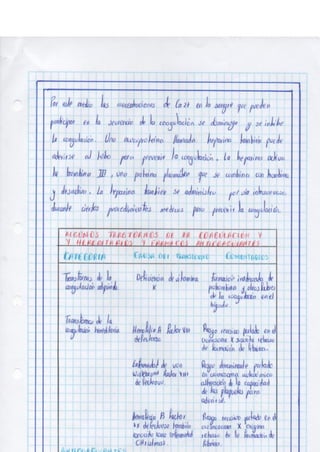 Por este medio las concentraciones de Ca2+ en la sangre que pueden
participar en la secuencia de la coagulación se disminuye y se inhibe
la coagulación. Una mucoproteína llamada heparina también puede
adnirse al tubo para prevenir la coagulación. La heparina activa
la trombina III, una proteína plasmática que se combina con trombina
y desactiva. La heparina también se administra por vía intravenosa
durante ciertos procedimientos médicos para prevenir la coagulación.
ALGUNOS TRASTORNOS DE LA COAGULACIÓN Y
Y HEREDITARIOS Y FÁRMACOS ANTICOAGULANTES
CATEGORÍA CAUSA DEL TRANSTORNO COMENTARIOS
Trastornos de la Deficiencia de vitamina Formación inadecuada de
coagulación adquirido K protrombina y otros factores
de la coagulación en el
hígado
Trastornos de la
coagulación hereditaria Hemofilia A factor VIII Rasgo recesivo portado en el
defectuoso cromosoma X
de formación de fibrina.
Enfermedad de von Rasgo dominante portado
Willebrand factor VIII en cromosoma autosómico
defectuoso. alteración de la capacidad
de las plaquetas para
adherirse.
Hemofilia B factor Rasgo recesivo portado en el
IX defectuoso también cromosoma X origina
conocido como enfermedad retraso de la formación de
Christmas. fibrina.